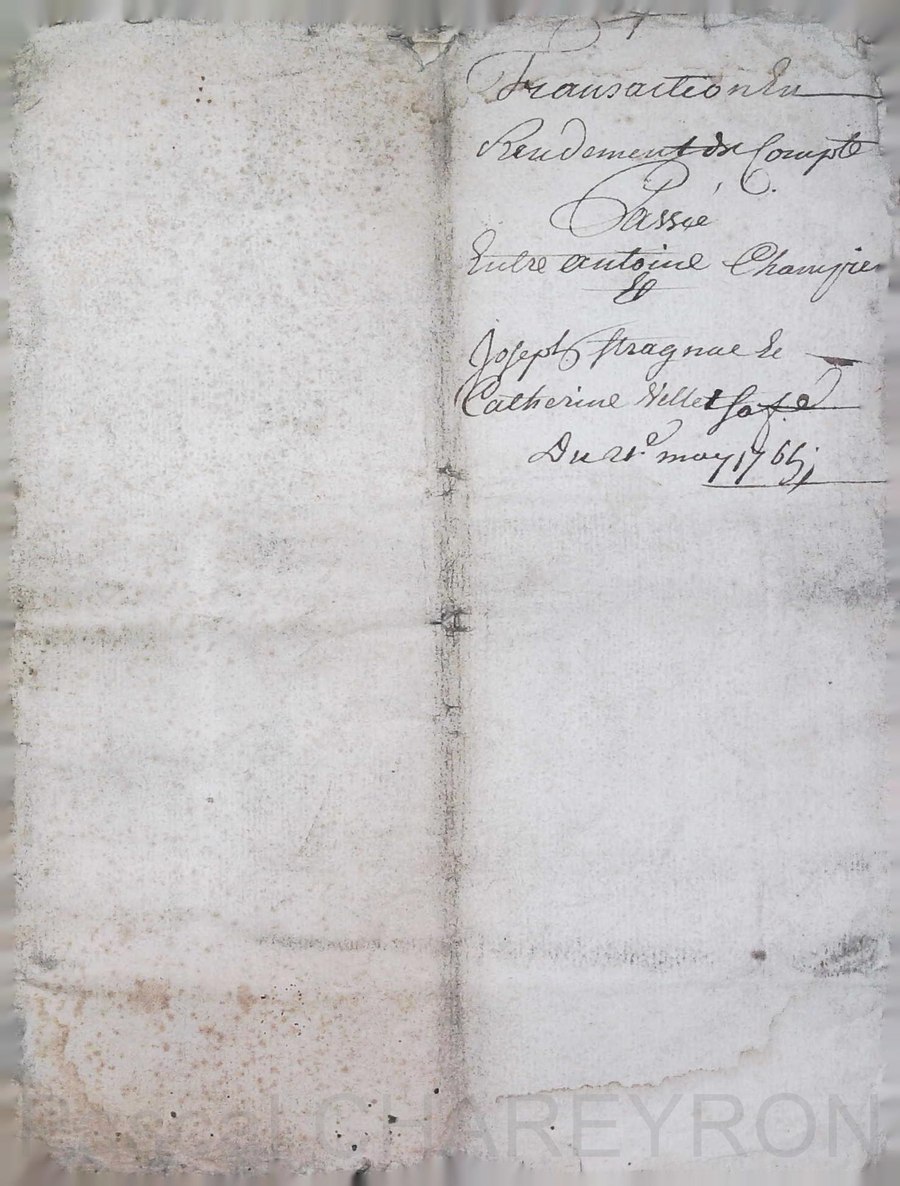 Transaction En
Rendement de Compte
Passée
Entre antoine Champie
Et
Joseph Stragnac Et
Catherine Villet Sa f.e
Du 21.e may 1766
CHAREYRON